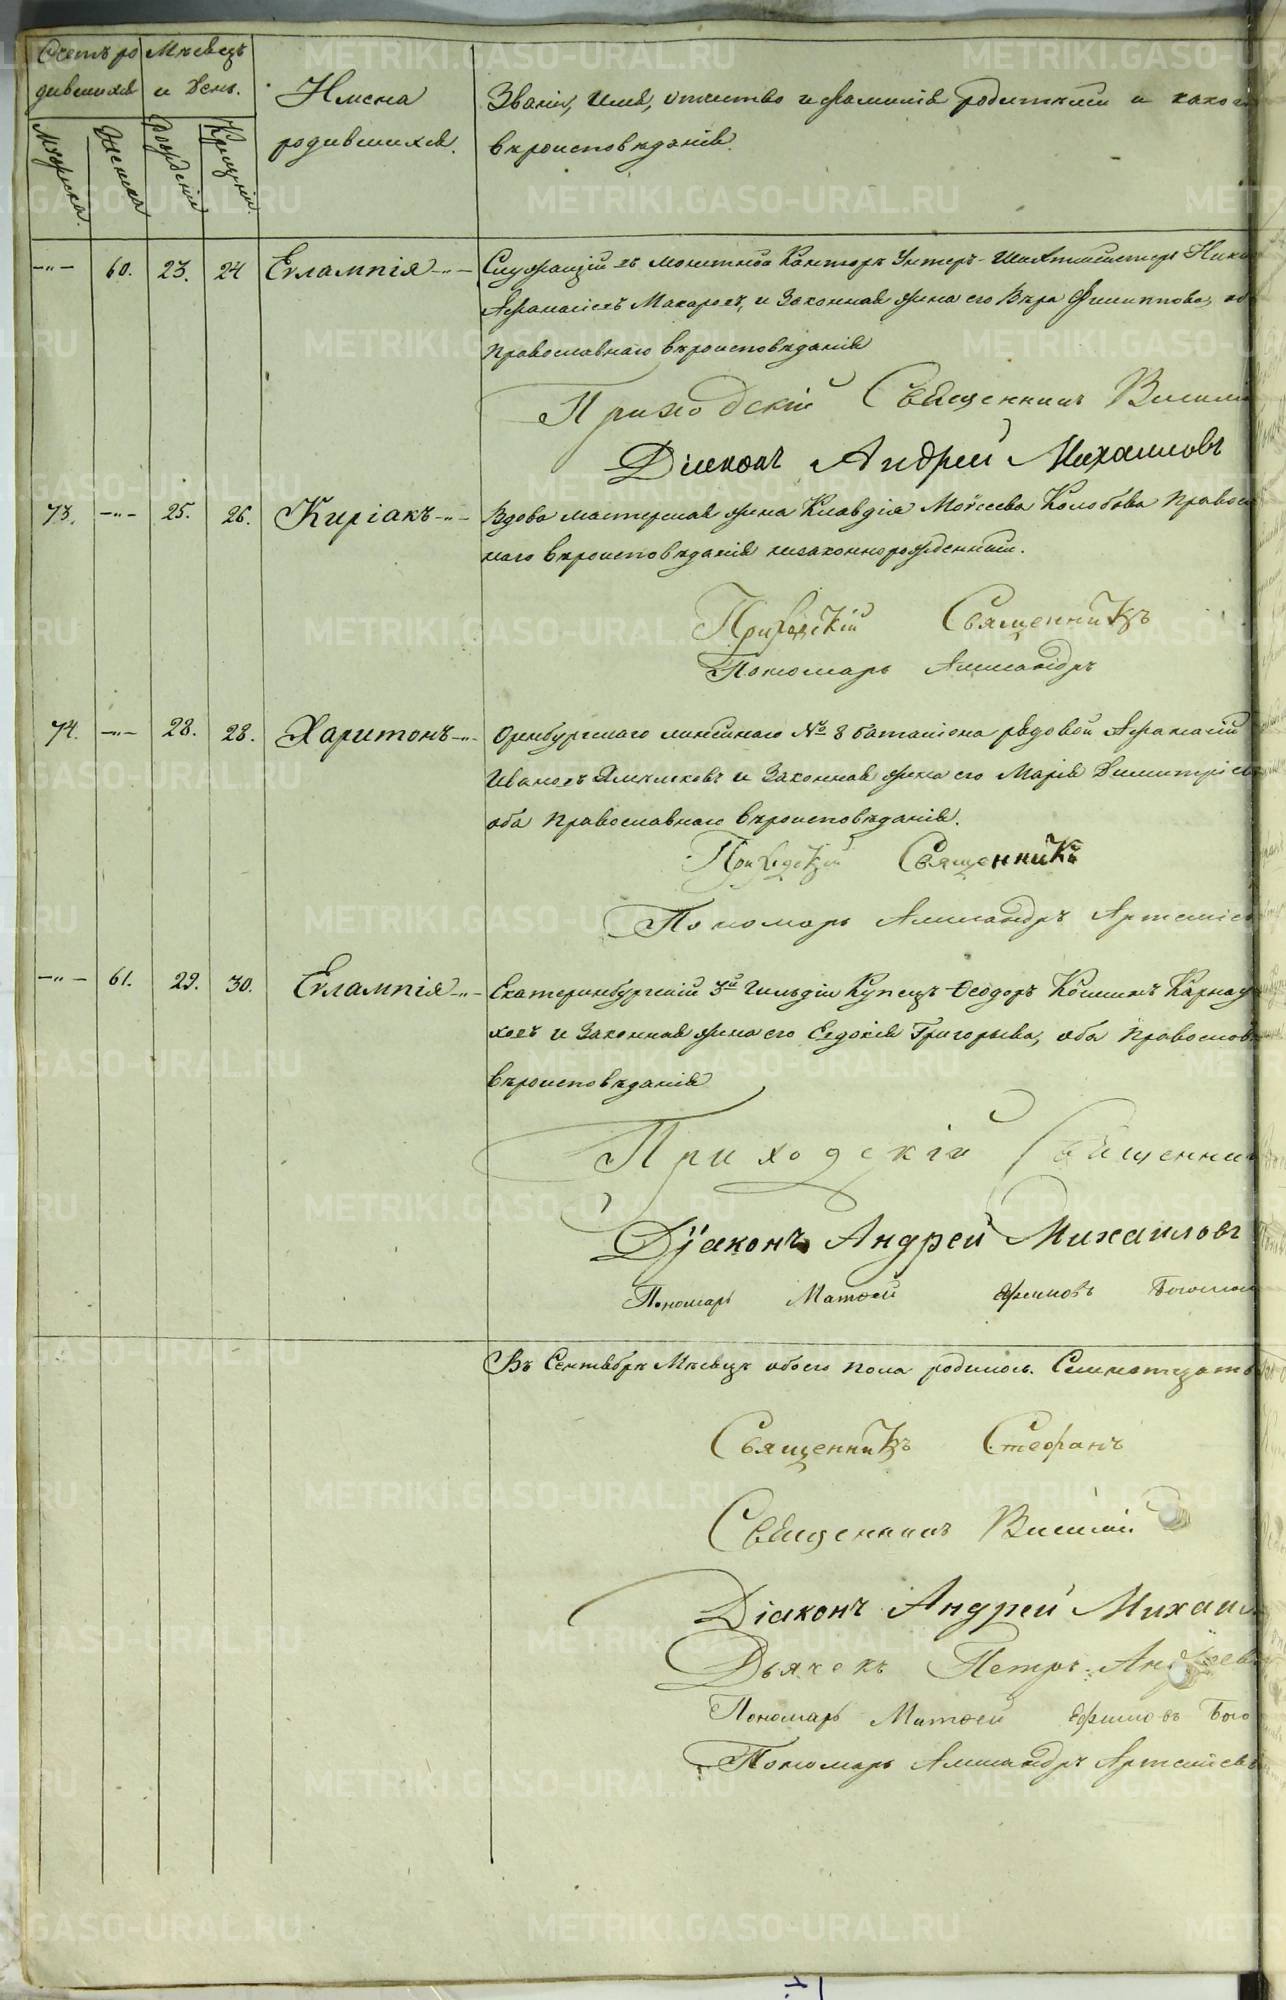 Счетъ ро Мѣсяцъ
дившихся и День.
Имена
родившихся.
Званіе, имя, отчество и фамилія родителей и какого
вѣроисповѣданія.
Мужеска.
Женска
Рожденія
Крещенія.
-"- 60. 23. 24 Евлампія -"- Служащій въ монетной Конторѣ Унтеръ-Шихтмейстеръ
Афанасьевъ Макаровъ, и Законная жена его Вѣра Филиппова,
православнаго вѣроисповѣданія
Приходскій Священникъ Василій
Діаконъ Андрей Михаиловъ
73. -"- 25. 26. Киріакъ -"- Вдова мастерская жена Клавдія Моисеева Колобова Правосла
наго вѣроисповѣданія незаконнорожденный.
Приходскій Священникъ
Пономарь Александръ
74. -"- 28. 28. Харитонъ -"- Оренбургскаго линейнаго № 8 баталіона рядовой Афанасій
Ивановъ и Законная жена его Марія Димитріева
оба Православнаго вѣроисповѣданія.
Приходскій Священникъ
Пономарь Александръ Артеміев
-"- 61. 29. 30. Евлампія -"- Екатеринбургскій 3й Гильдіи Купецъ Ѳеодоръ Козминъ Карнау
ховъ и Законная жена его Евдокія Григорьева, оба Православ
вѣроисповѣданія
Приходскій Священник
Діаконъ Андрей Михаиловъ
Пономарь Матѳей Ефимовъ
Въ Сентябрѣ Мѣсяцѣ обоего пола родилось. Семнатцать
Священникъ Стефанъ
Священникъ Василій
Діаконъ Андрей Михаил
Дьячекъ Петръ Андреевъ
Пономарь Матѳей Ефимовъ Бого
Пономарь Александръ Артеміевъ
METRIKI.GASO-URAL.RU